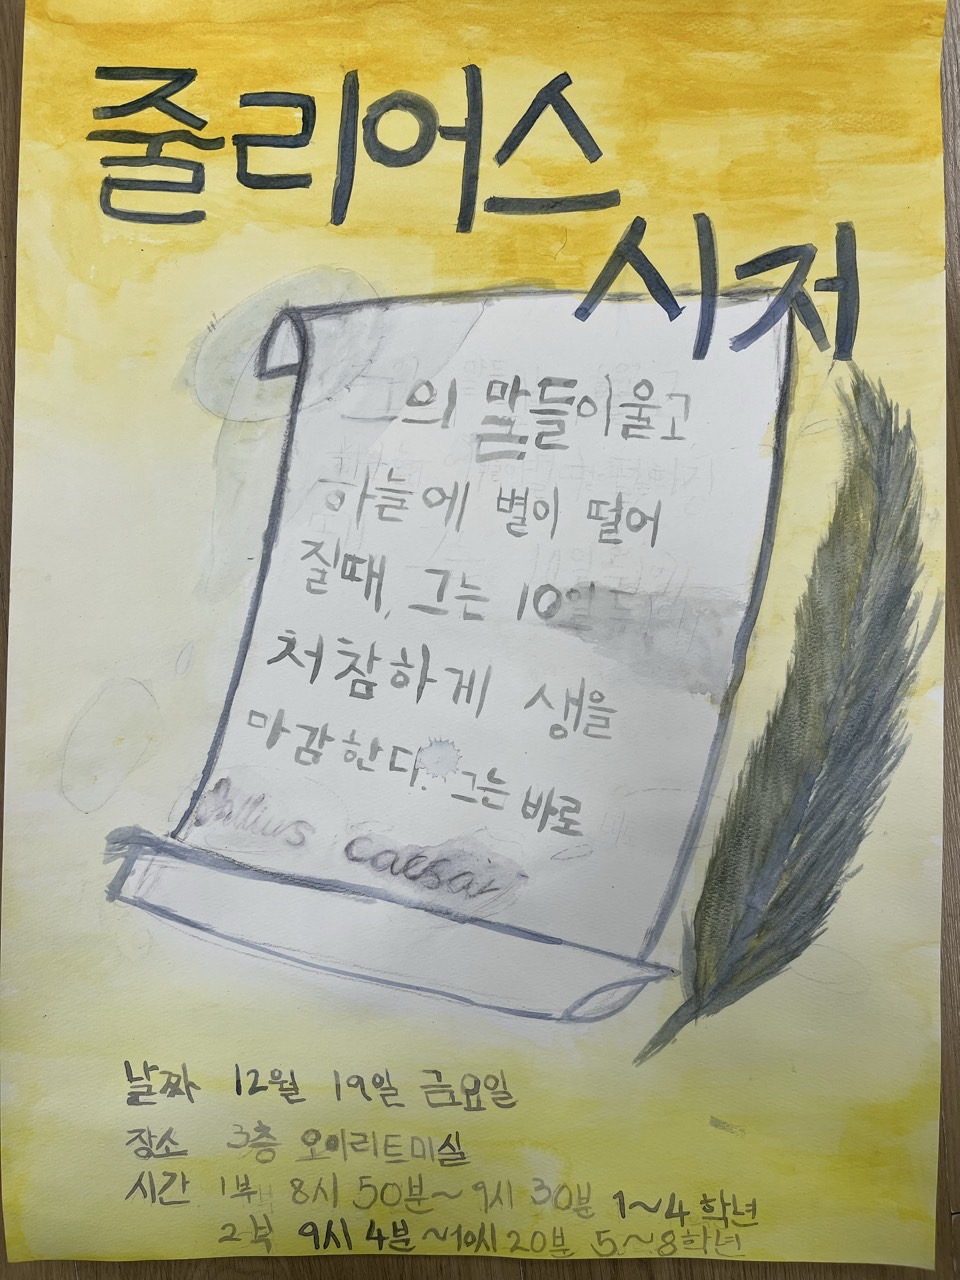 줄리어스
시저
그의 말들이 울고
하늘에 별이 떨어
질때, 그는 10일
처참하게 생을
마감한다. 그는 바로
Julius caesar
날짜 12월 19일 금요일
장소 3층 오이리트미실
시간 1부 8시 50분~9시 30분 1~4학년
2부 9시 4분~10시 20분 5~8학년